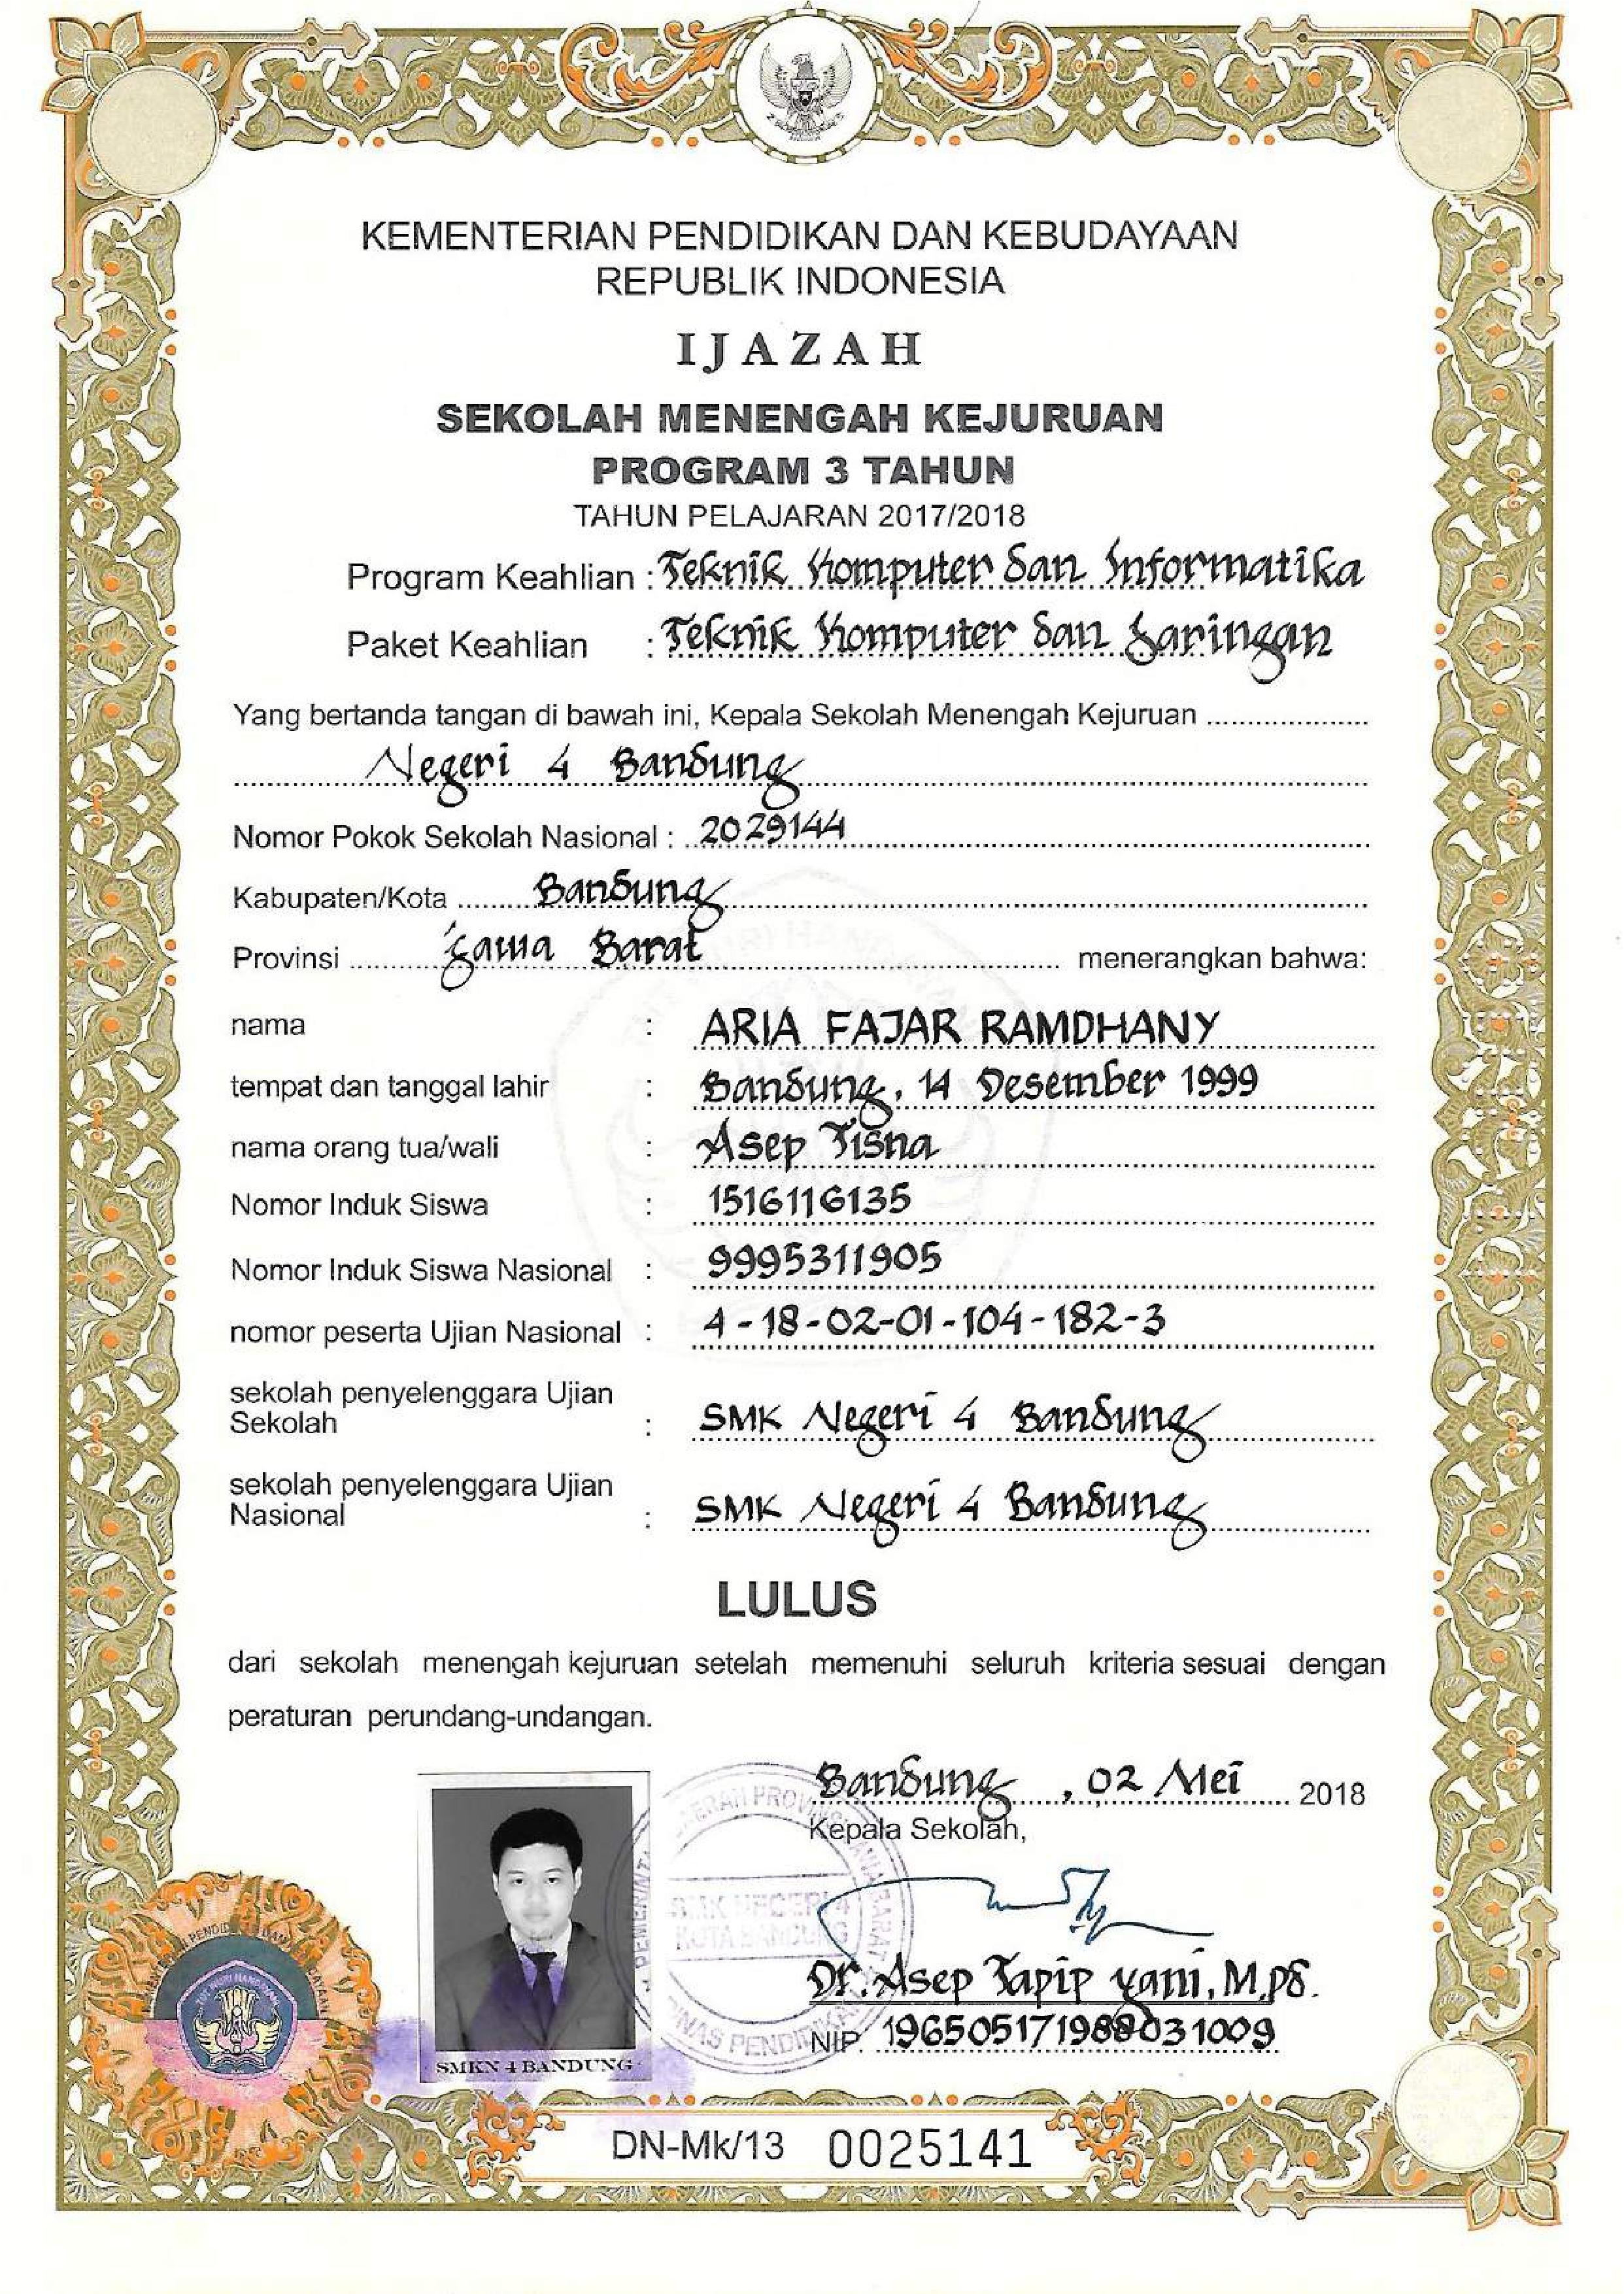 KEMENTERIAN PENDIDIKAN DAN KEBUDAYAAN
REPUBLIK INDONESIA
IJAZAH
SEKOLAH MENENGAH KEJURUAN
PROGRAM 3 TAHUN
TAHUN PELAJARAN 2017/2018
Program Keahlian : Teknik Komputer dan Informatika
Paket Keahlian : Teknik Komputer dan Jaringan
Yang bertanda tangan di bawah ini, Kepala Sekolah Menengah Kejuruan
Negeri 4 Bandung
Nomor Pokok Sekolah Nasional : 2029144
Kabupaten/Kota Bandung
Provinsi Jawa Barat menerangkan bahwa:
nama : ARIA FAJAR RAMDHANY
tempat dan tanggal lahir : Bandung, 14 Desember 1999
nama orang tua/wali : Asep Tisna
Nomor Induk Siswa : 1516116135
Nomor Induk Siswa Nasional : 9995311905
nomor peserta Ujian Nasional : 4-18-02-01-104-182-3
sekolah penyelenggara Ujian
Sekolah : SMK Negeri 4 Bandung
sekolah penyelenggara Ujian
Nasional : SMK Negeri 4 Bandung
LULUS
dari sekolah menengah kejuruan setelah memenuhi seluruh kriteria sesuai dengan
peraturan perundang-undangan.
Bandung, 02 Mei 2018
Kepala Sekolah,
SMK NEGERI 4
KOTA BANDUNG
Dr. Asep Tapip Yani, M.Pd.
NIP. 196505171988031009
SMKN 4 BANDUNG
DN-Mk/13 0025141